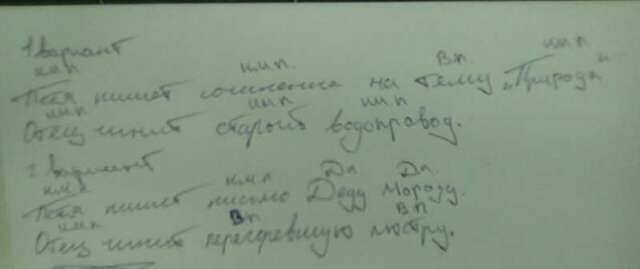 1 вариант
им.п. им.п. В.п. им.п.
Петя пишет сочинение на тему „Природа“
им.п. им.п. им.п.
Отец чинит старый водопровод.
2 вариант
им.п. им.п. Дп Дп
Петя пишет письмо Деду Морозу.
им.п. Вп Вп
Отец чинит перегоревшую люстру.